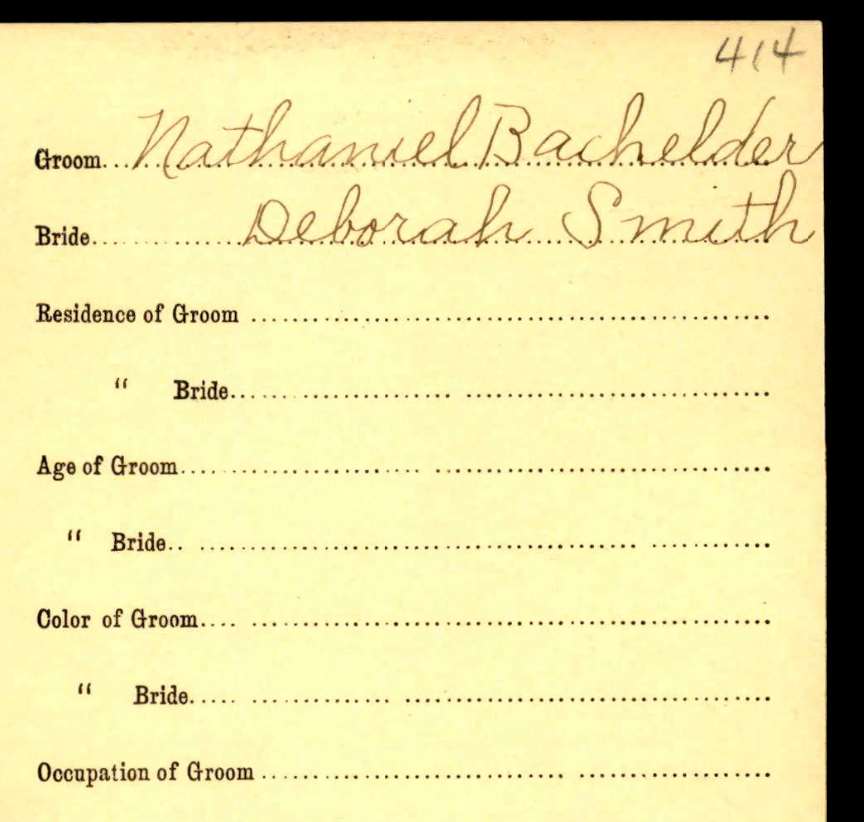 414
Groom...Nathaniel Bachelder
Bride..............Deborah Smith
Residence of Groom ........................................
" Bride........................................
Age of Groom........................................
" Bride.. ........................................
Color of Groom.... ........................................
" Bride..... ........................................
Occupation of Groom ........................................